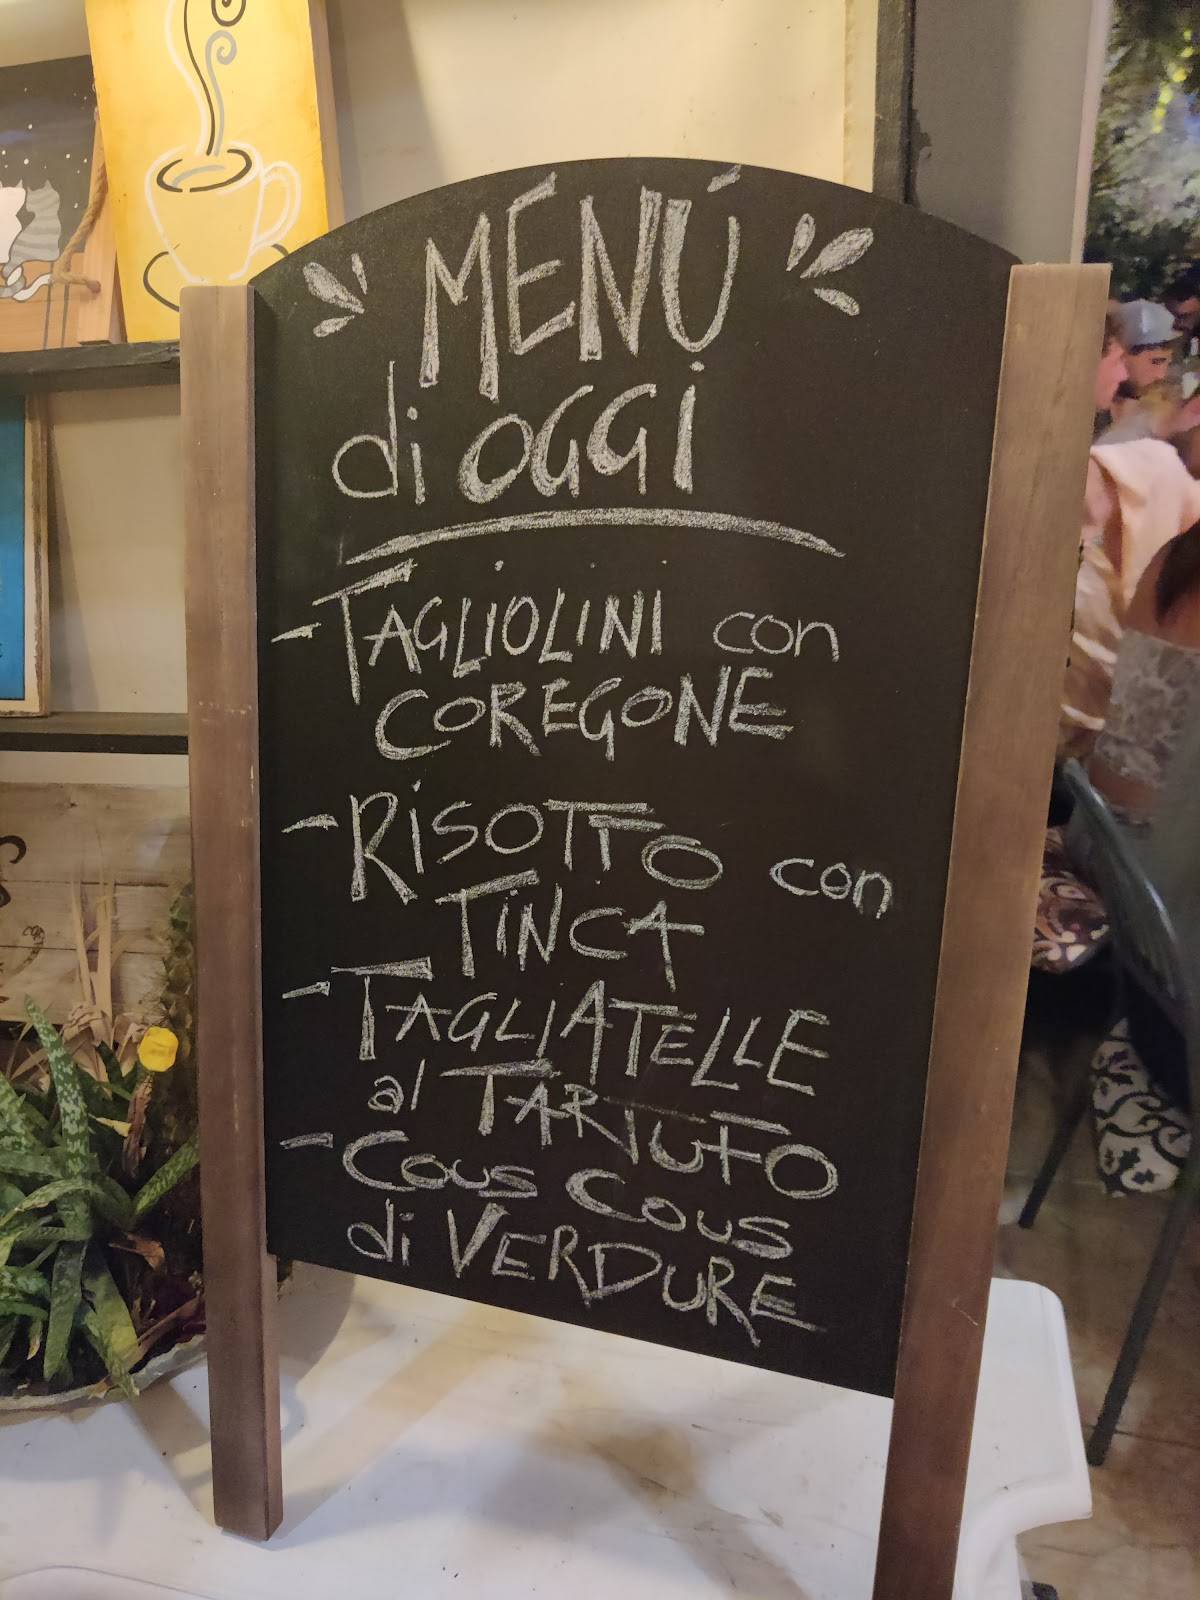 MENÚ
di OGGI
- TAGLIOLINI con
COREGONE
- RISOTTO con
TINCA
- TAGLIATELLE
al TARTUFO
- COUS COUS
di VERDURE